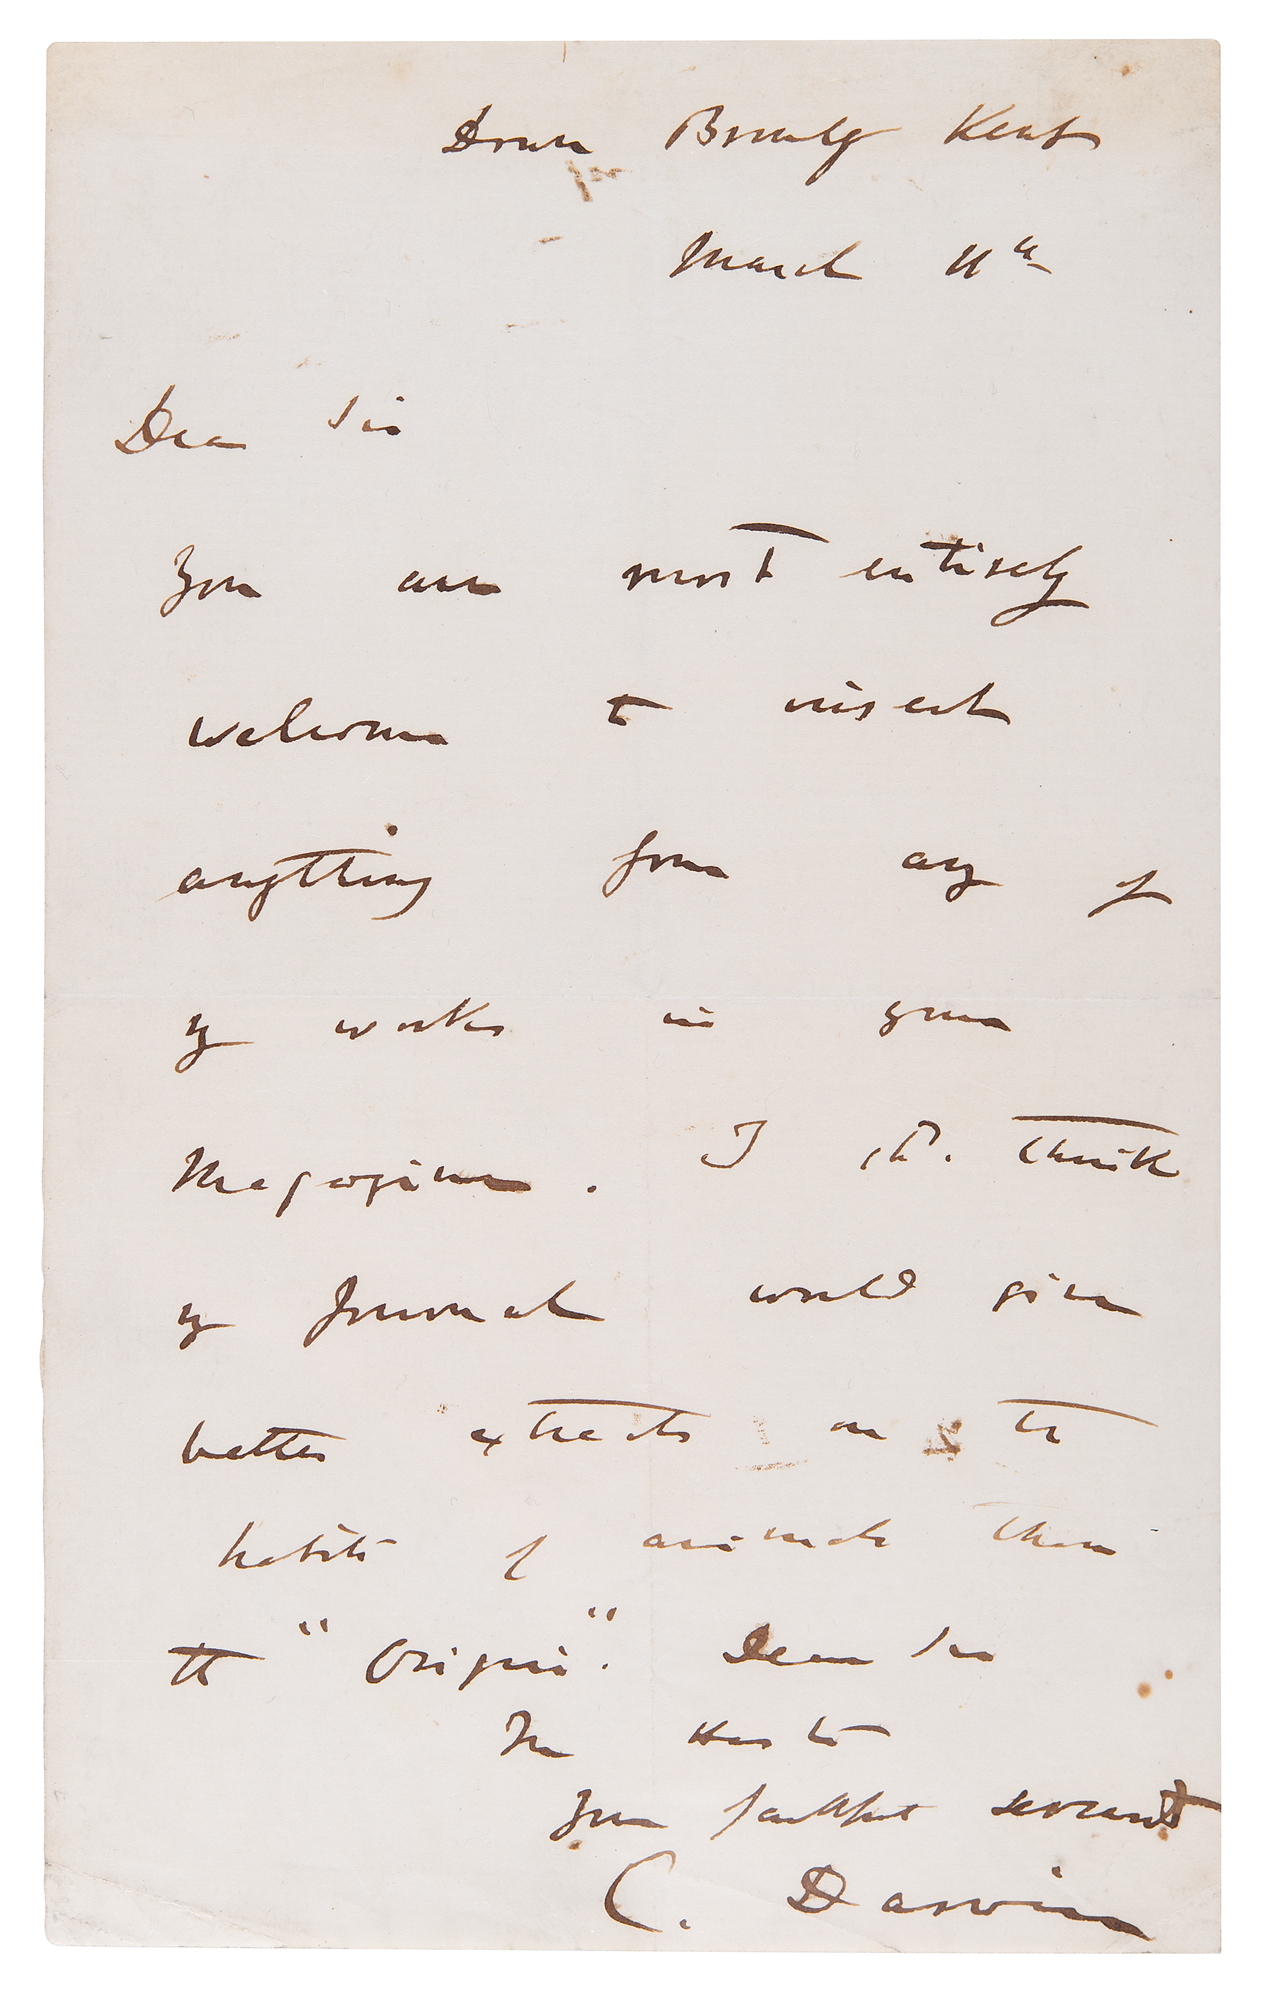 Down Bromley Kent
March 11th
Dear Sir
You are most entirely
welcome to insert
anything from any of
my works in your
Magazine. I shd. think
my Journal would give
better extracts on the
habits of animals than
the "Origin". Dear Sir
In haste
Your faithful servant
C. Darwin